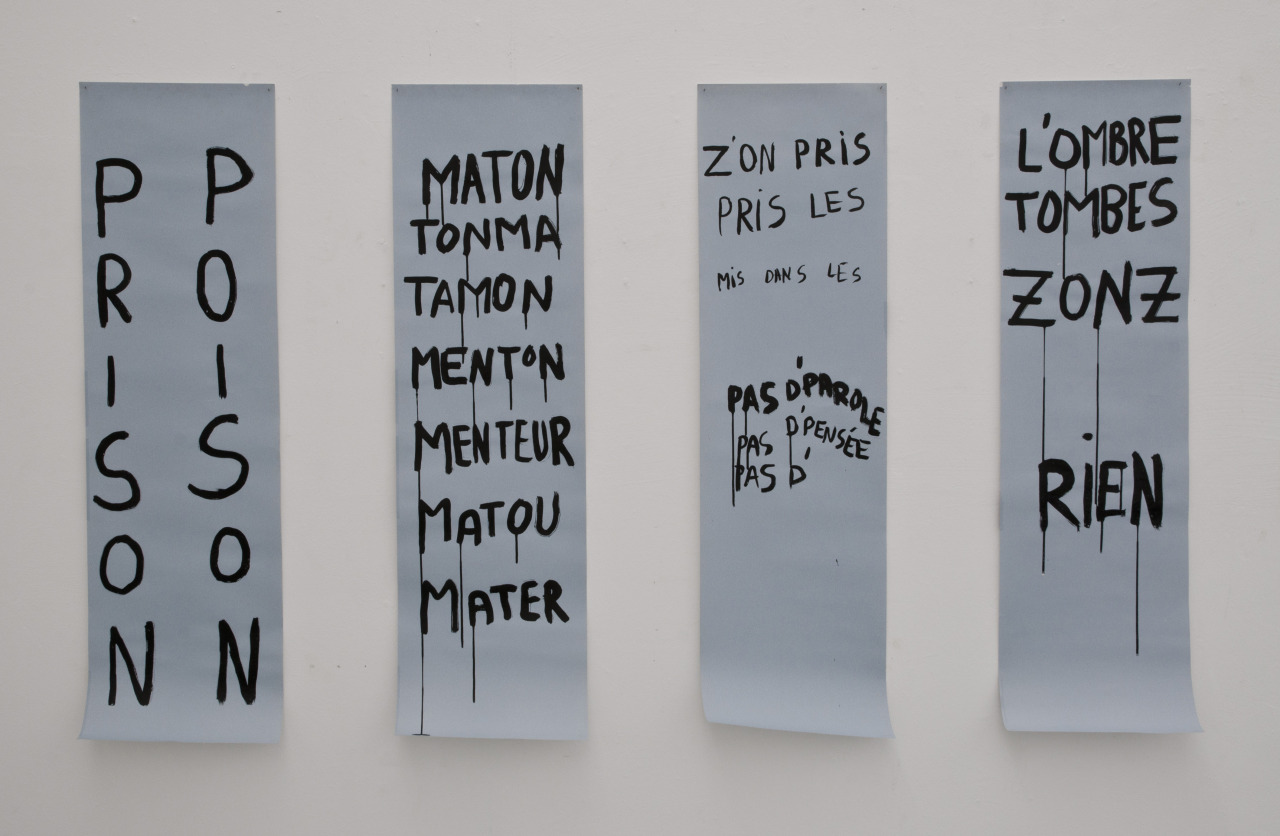 PRISON
POISON
MATON
TONMA
TAMON
MENTON
MENTEUR
MATOU
MATER
Z'ON PRIS
PRIS LES
MIS DANS LES
PAS D'PAROLE
PAS D'PENSÉE
PAS D'
L'OMBRE
TOMBES
ZONZ
RIEN